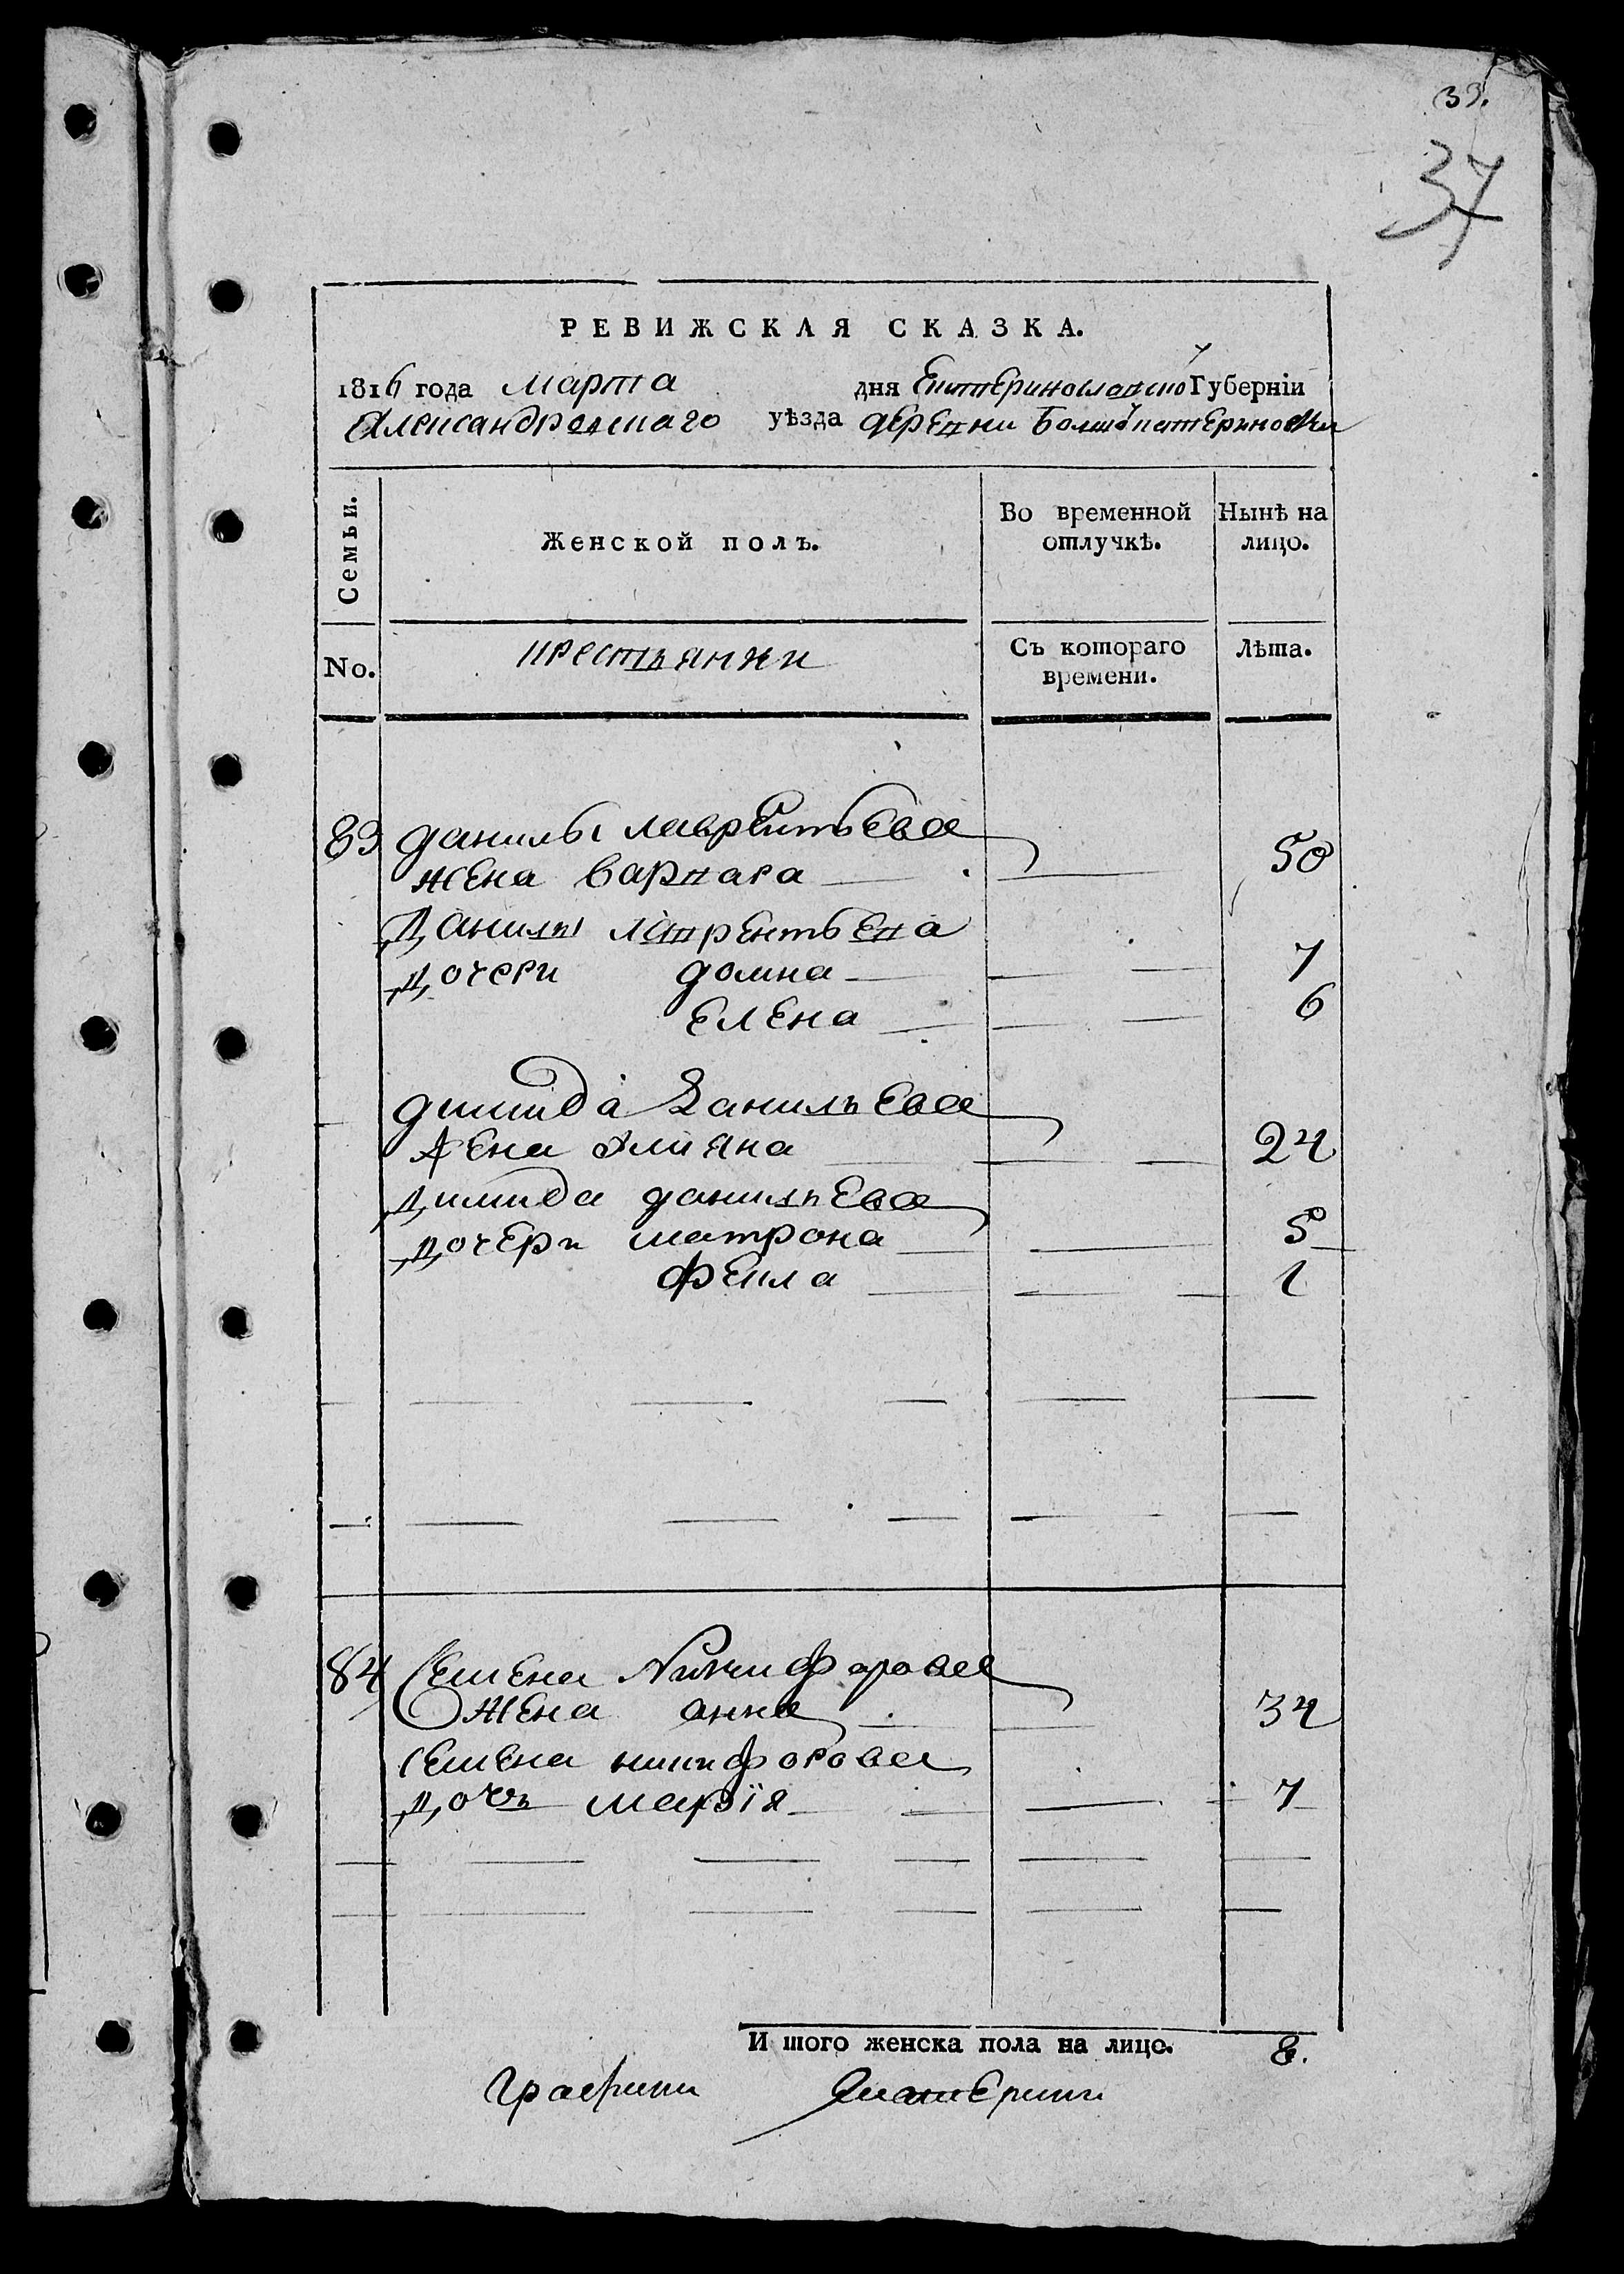 39.
37
РЕВИЖСКАЯ СКАЗКА.
1816 года Марта дня Екатеринославской Губерніи
Александровскаго уѣзда деревни Болшой катериновки
Семьи.
Женской полъ.
Во временной отлучкѣ.
Нынѣ на лицо.
No.
крестьянки
Съ котораго времени.
Лѣта.
83 данилы лаврентьева
жена варвара 50
Данилы лаврентьева
дочери домна 7
Елена 6
димида Данильева
жена 24
Димида данильева
дочери матрона 5
фекла 1
84 Семена Никифорова
жена анна 34
семена никифорова
дочь марѳія 7
Итого женска пола на лицо. 8.
Графини